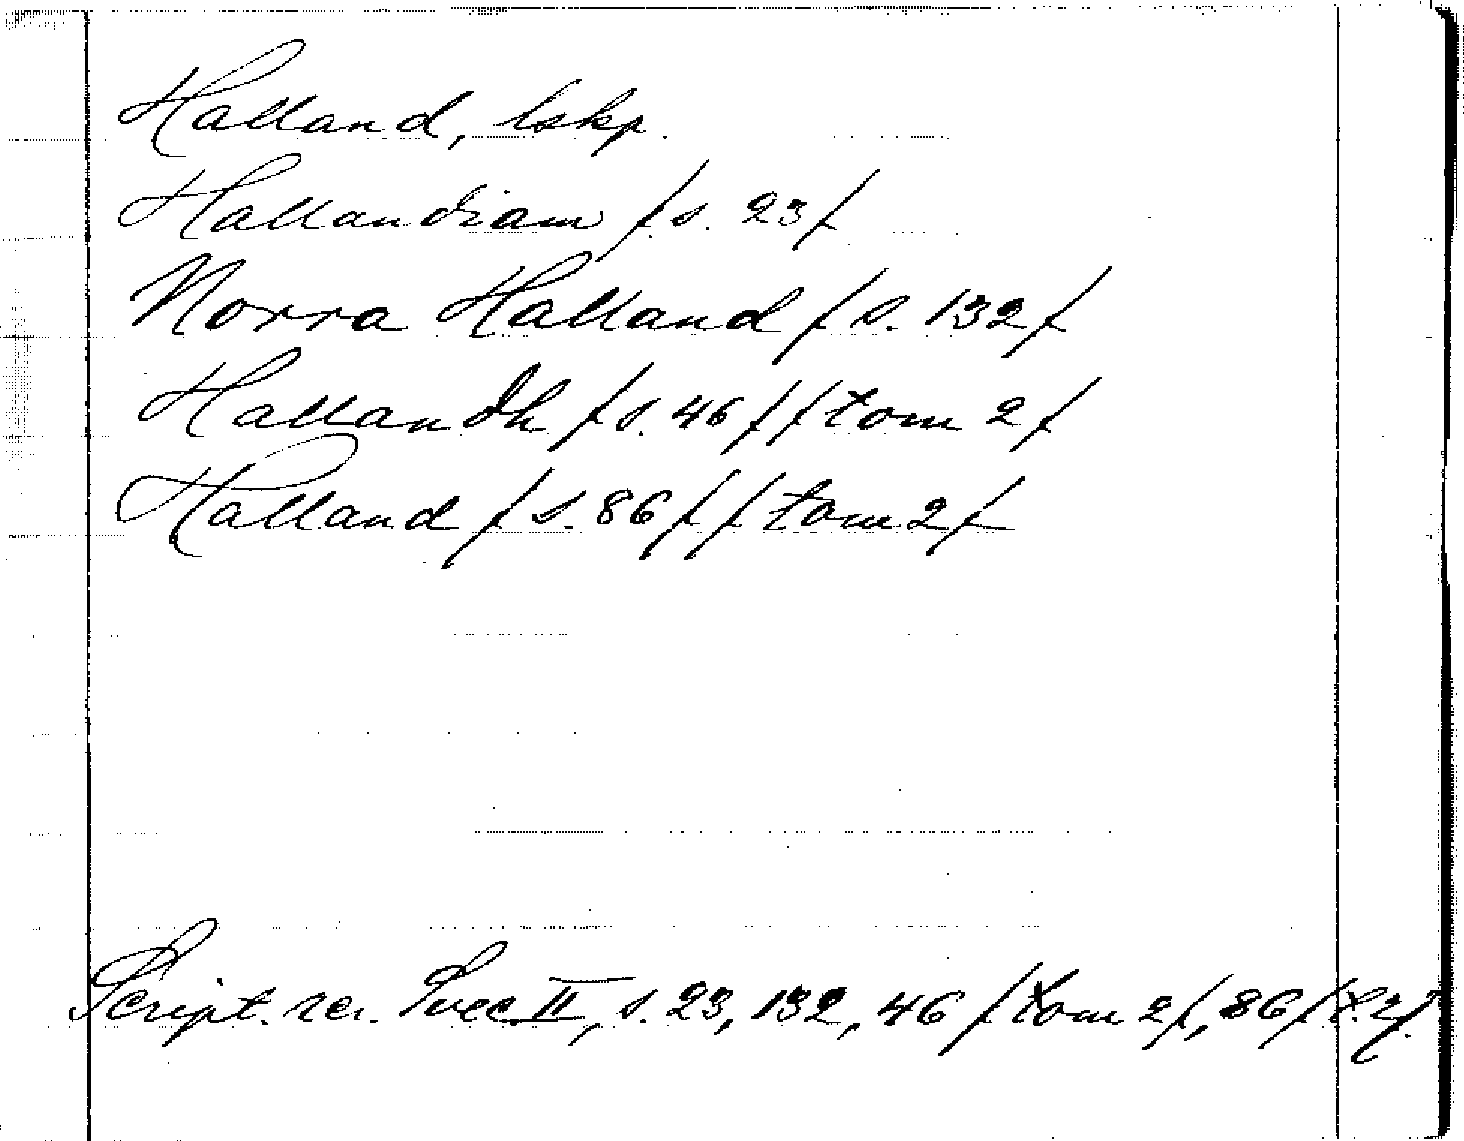 Halland, lskp.
Hallandiam /s. 23/
Norra Halland /s. 132/
Hallandh /s. 46/ /tom 2/
Halland /s. 86/ /tom 2/
Script. rer. Svec. II, s. 23, 132, 46 /tom 2/, 86 /t. 2/.